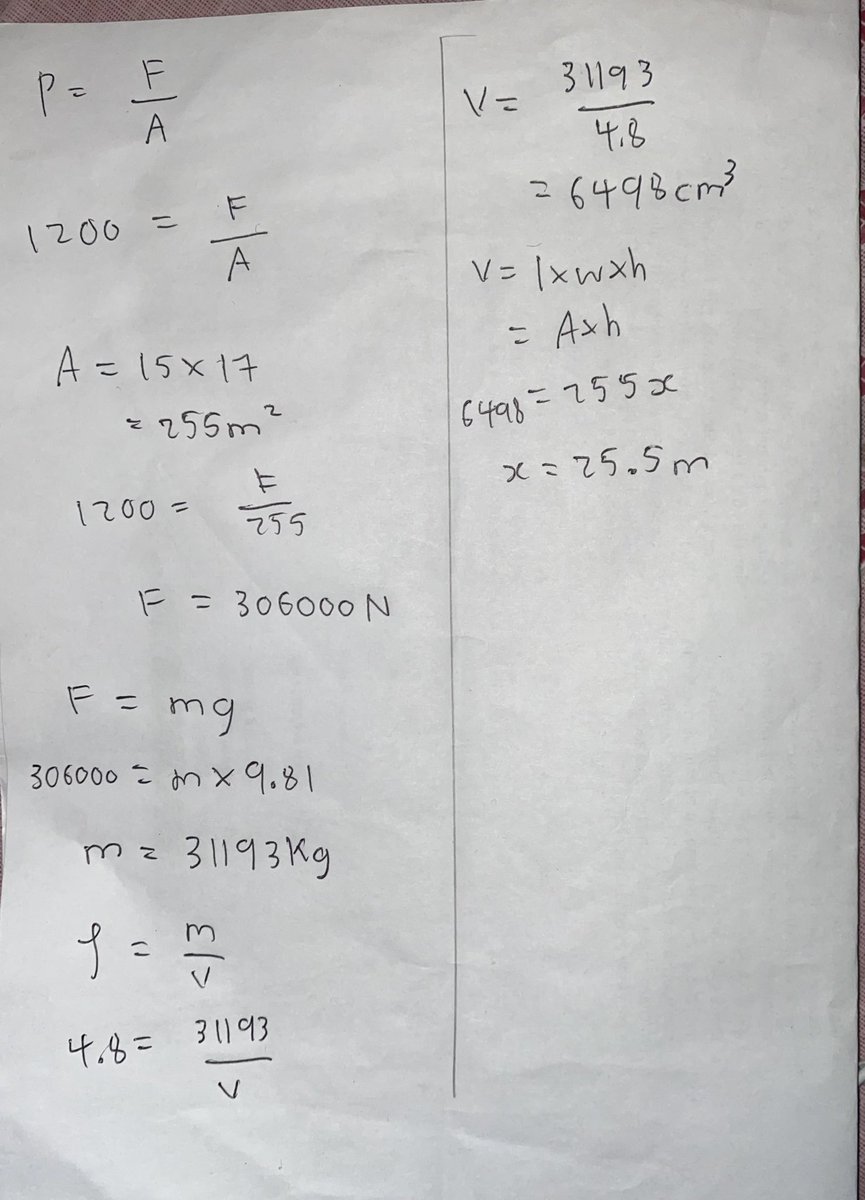 P = F/A
1200 = F/A
A = 15 × 17
= 255m²
1200 = F/255
F = 306000N
F = mg
306000 = m × 9.81
m = 31193Kg
ρ = m/V
4.8 = 31193/V
V = 31193/4.8
= 6498cm³
V = l×w×h
= A×h
6498 = 255x
x = 25.5m